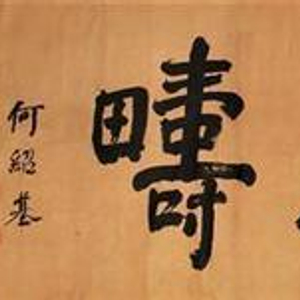 疇
何紹基